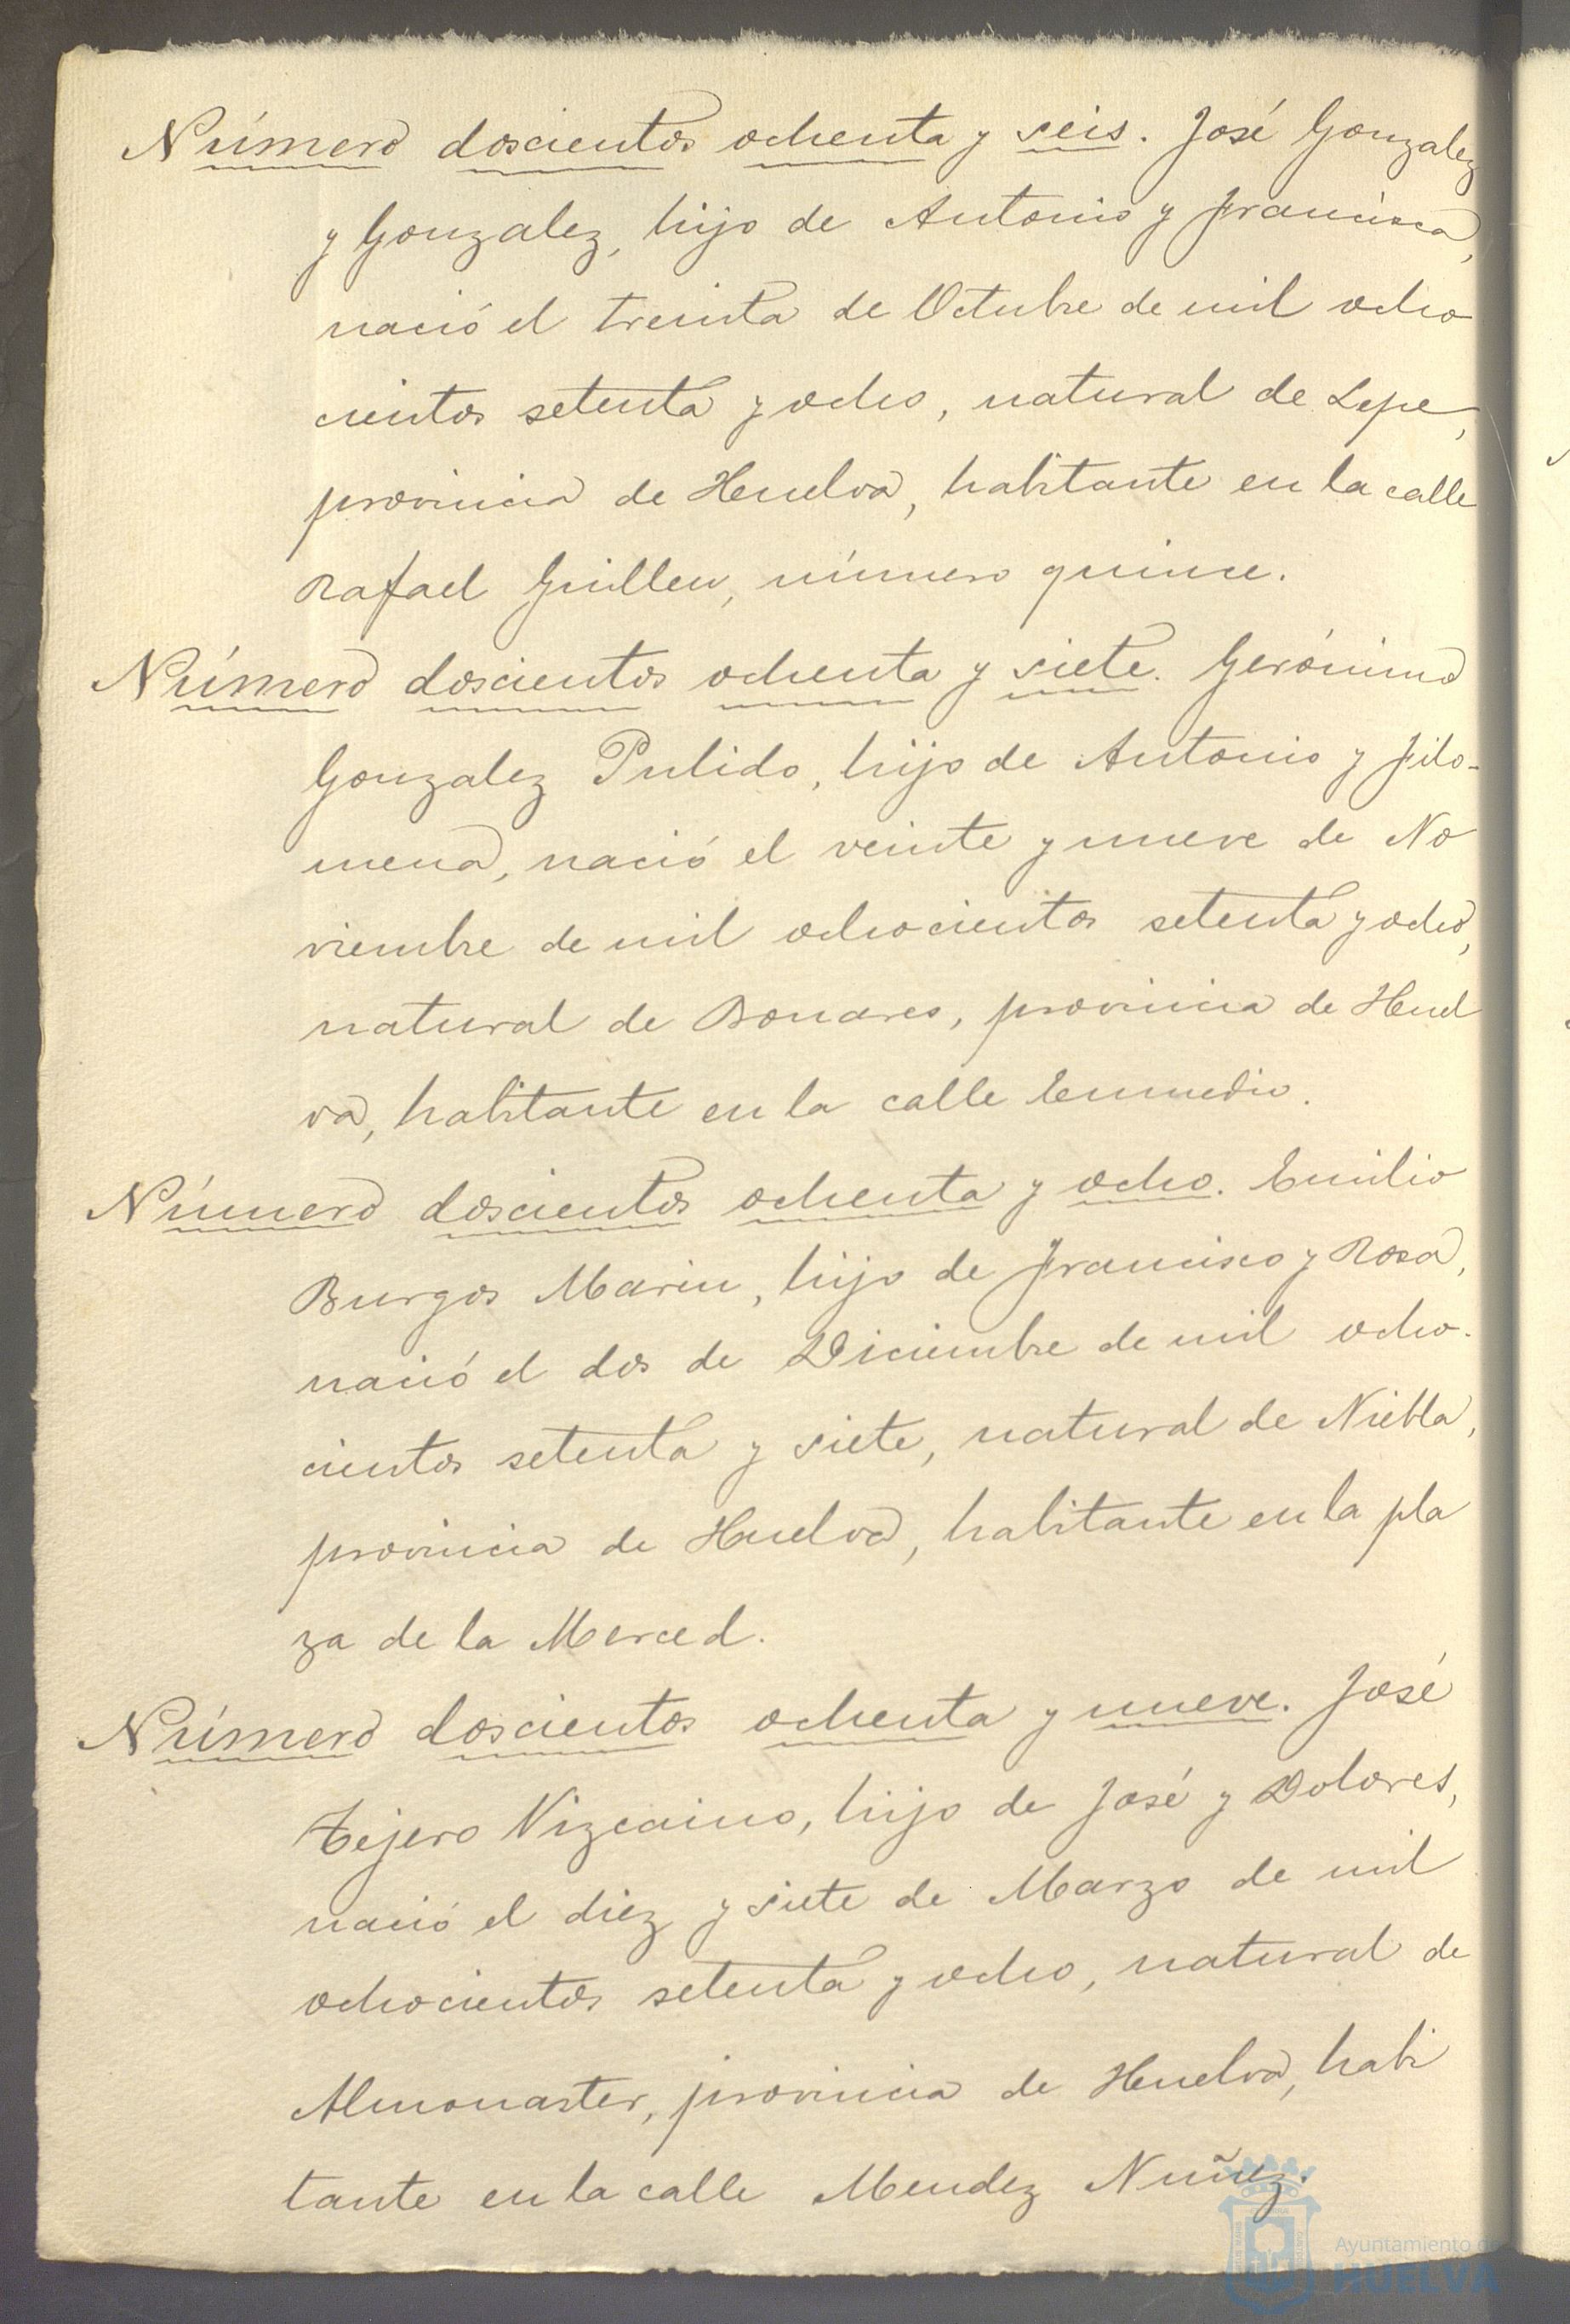 Número doscientos ochenta y seis. José Gonzalez
y Gonzalez, hijo de Antonio y Francisca,
nació el treinta de Octubre de mil ocho
cientos setenta y ocho, natural de Lepe,
provincia de Huelva, habitante en la calle
Rafael Guillen, número quince.
Número doscientos ochenta y siete. Gerónimo
Gonzalez Pulido, hijo de Antonio y Filo-
mena, nació el veinte y nueve de No
viembre de mil ochocientos setenta y ocho,
natural de Bonares, provincia de Huel
va, habitante en la calle Enmedio.
Número doscientos ochenta y ocho. Emilio
Burgos Marin, hijo de Francisco y Rosa,
nació el dos de Diciembre de mil ocho-
cientos setenta y siete, natural de Niebla,
provincia de Huelva, habitante en la pla
za de la Merced.
Número doscientos ochenta y nueve. José
Tejero Vizcaino, hijo de José y Dolores,
nació el diez y siete de Marzo de mil
ochocientos setenta y ocho, natural de
Almonaster, provincia de Huelva, habi
tante en la calle Mendez Nuñez.
Ayuntamiento de
HUELVA